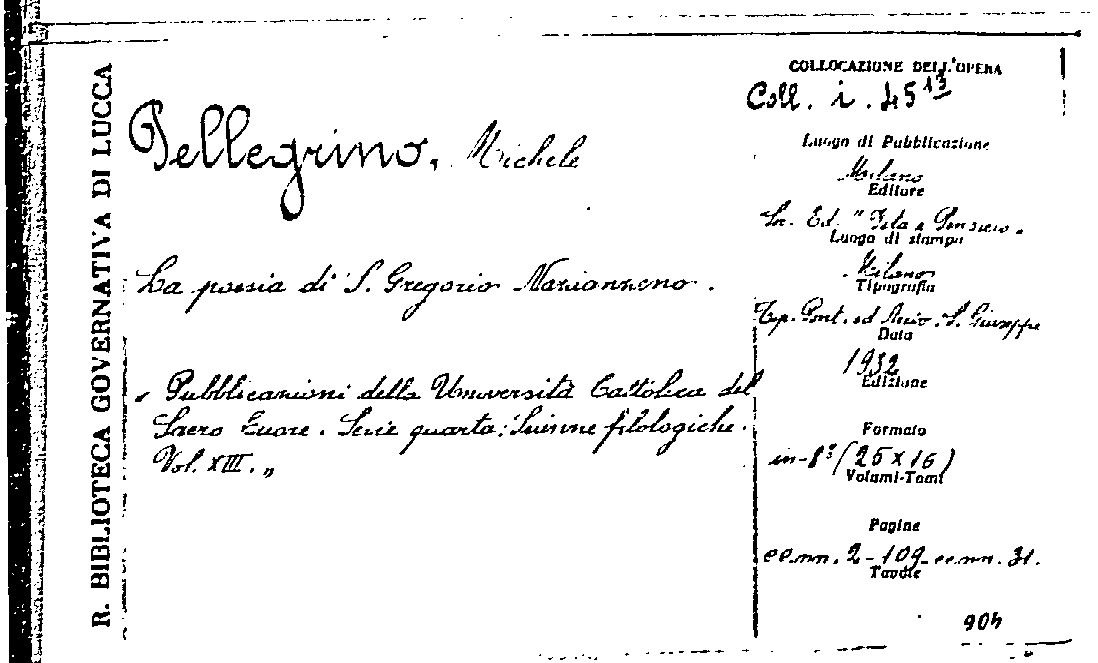 R. BIBLIOTECA GOVERNATIVA DI LUCCA
Pellegrino, Michele
La poesia di S. Gregorio Nazianzeno.
"Pubblicazioni della Università Cattolica del
Sacro Cuore. Serie quarta: Scienze filologiche.
Vol. XIII."
COLLOCAZIONE DELL'OPERA
Coll. i. 45 13
Luogo di Pubblicazione
Milano
Editore
Soc. Ed. "Vita e Pensiero"
Luogo di stampa
Milano
Tipografia
Tip. Pont. ed Arciv. S. Giuseppe
Data
1932
Edizione
Formato
in-8° (25 x 16)
Volumi-Tomi
Pagine
cc.nn. 2-109-cc.nn. 31.
Tavole
904